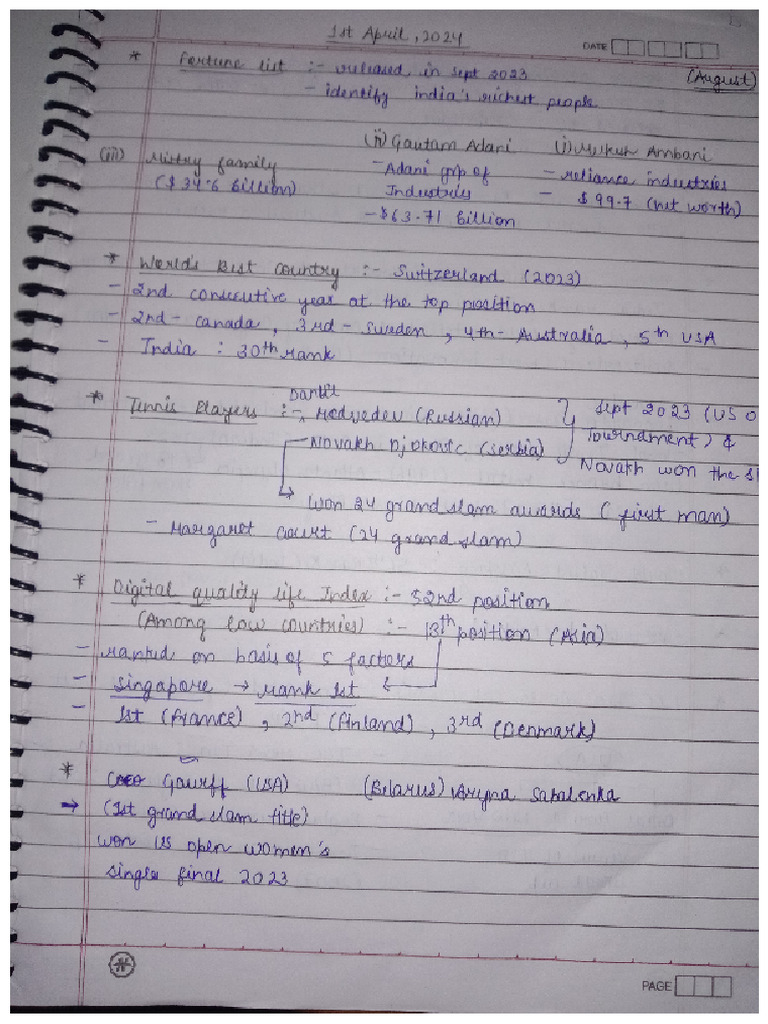 1st April, 2024
DATE
* Fortune list :- released in sept 2023 (August)
- identify india's richest people
(iii) Mistry family (ii) Gautam Adani (i) Mukesh Ambani
($ 34.6 Billion) - Adani grp of Industries - reliance industries
- $63.71 Billion - $ 99.7 (net worth)
* World's Best Country :- Switzerland (2023)
- 2nd consecutive year at the top position
- 2nd - Canada, 3rd - Sweden, 4th - Australia, 5th USA
- India : 30th rank
* Tennis Players :- Daniil Medvedev (Russian) } Sept 2023 (US O
- Novakh Djokovic (Serbia) Tournament) &
Novakh won the
↳ Won 24 grand slam awards (first man)
- Margaret Court (24 grand slam)
* Digital quality life Index :- 52nd position
(Among low countries) :- 13th position (Asia)
- ranked on basis of 5 factors
- Singapore → rank 1st
- 1st (France), 2nd (Finland), 3rd (Denmark)
* Coco Gauff (USA) (Belarus) Aryna Sabalenka
→ (1st grand slam title)
won US open women's
single final 2023
PAGE